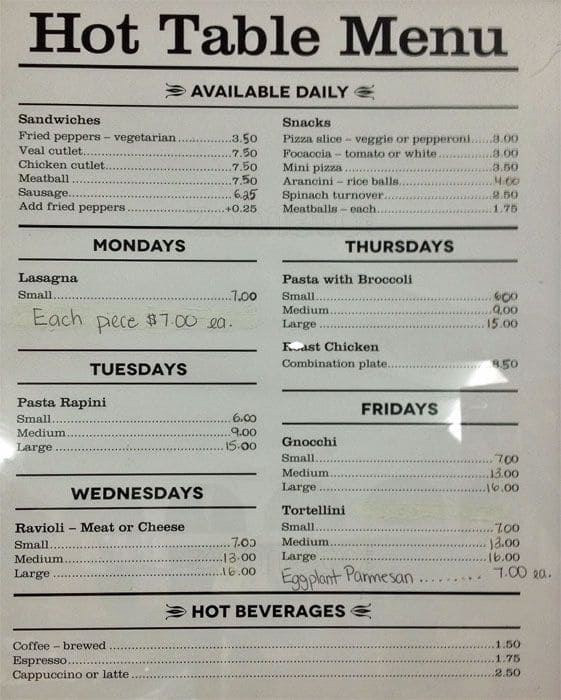 Hot Table Menu
AVAILABLE DAILY
Sandwiches
Fried peppers – vegetarian ............3.50
Veal cutlet..............7.50
Chicken cutlet..............7.50
Meatball ..............7.50
Sausage..............6.25
Add fried peppers ..............+0.25
Snacks
Pizza slice – veggie or pepperoni......3.00
Focaccia – tomato or white ..............3.00
Mini pizza ..............3.50
Arancini – rice balls..............4.00
Spinach turnover..............2.50
Meatballs – each..............1.75
MONDAYS
Lasagna
Small..............7.00
Each piece $7.00 ea.
TUESDAYS
Pasta Rapini
Small..............6.00
Medium..............9.00
Large ..............15.00
WEDNESDAYS
Ravioli – Meat or Cheese
Small..............7.00
Medium..............13.00
Large ..............16.00
THURSDAYS
Pasta with Broccoli
Small..............6.00
Medium..............9.00
Large ..............15.00
Roast Chicken
Combination plate..............8.50
FRIDAYS
Gnocchi
Small..............7.00
Medium..............13.00
Large ..............16.00
Tortellini
Small..............7.00
Medium..............13.00
Large ..............16.00
Eggplant Parmesan ......... 7.00 ea.
HOT BEVERAGES
Coffee – brewed ..............1.50
Espresso..............1.75
Cappuccino or latte ..............2.50